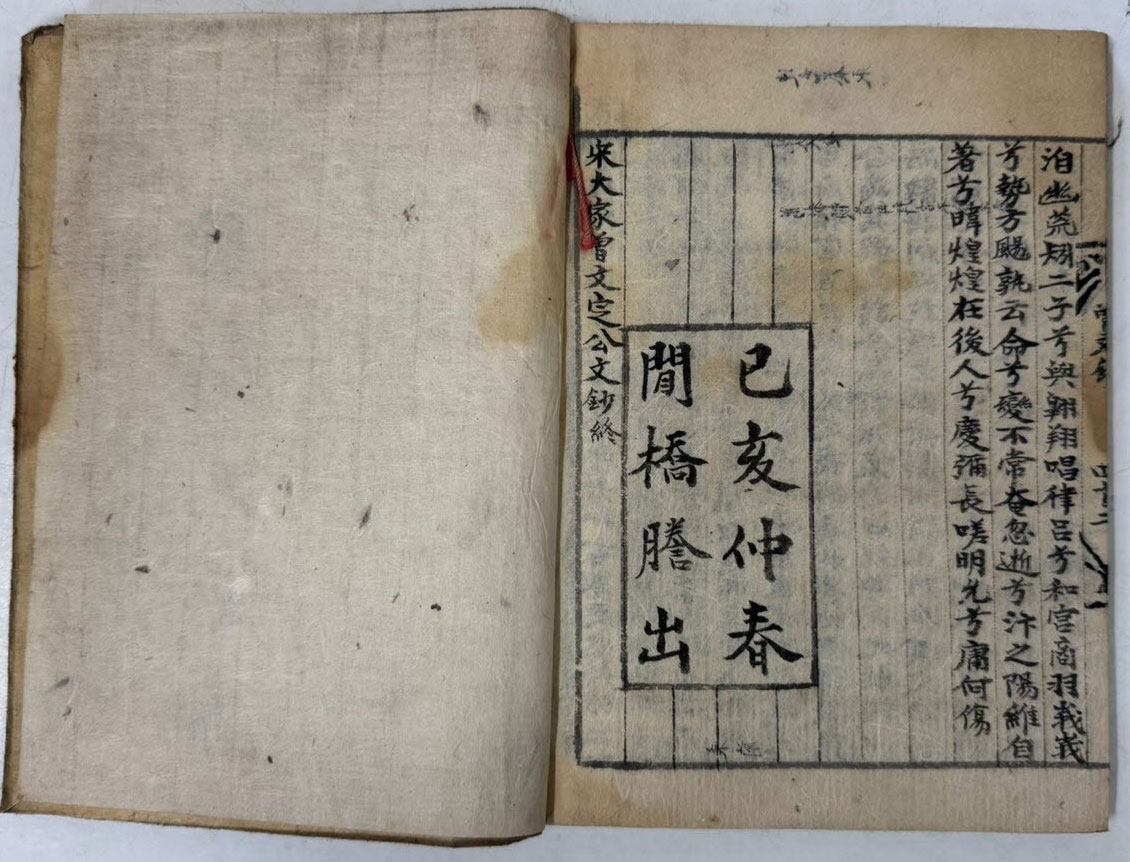 洎幽荒矧二子兮與翺翔唱律呂兮和宮商羽峩峩
兮勢方颺孰云命兮變不常奄忽逝兮汴之陽維自
著兮暐煌煌在後人兮慶彌長嗟明允兮庸何傷
己亥仲春
閒橋謄出
宋大家曾文定公文鈔終